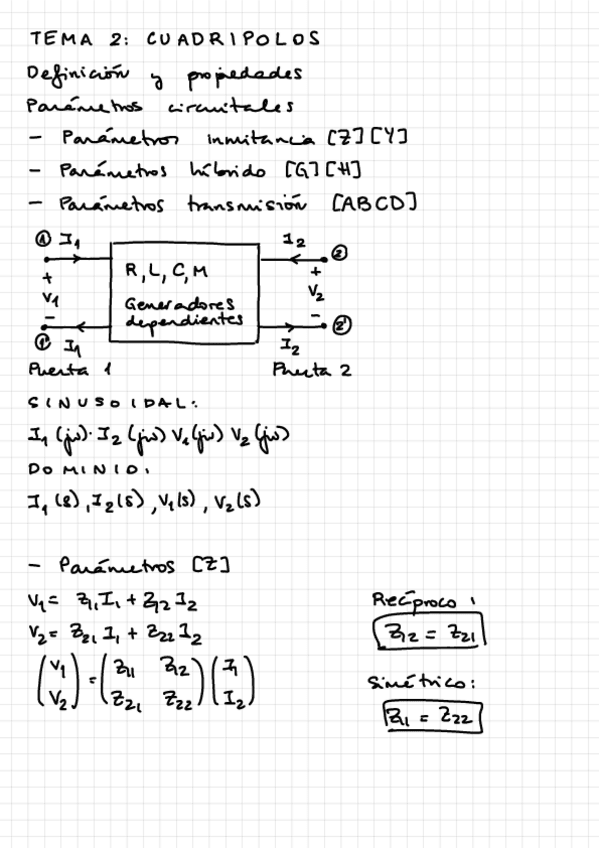 TEMA 2: CUADRIPOLOS
Definición y propiedades
Parámetros circuitales
- Parámetros inmitancia [Z][Y]
- Parámetros híbrido [G][H]
- Parámetros transmisión [ABCD]
① I₁ I₂ ②
+ R, L, C, M +
V₁ Generadores V₂
- dependientes -
①' I₁ I₂ ②'
Puerta 1 Puerta 2
SINUSOIDAL:
I₁(jω)· I₂(jω) V₁(jω) V₂(jω)
DOMINIO:
I₁(s), I₂(s), V₁(s), V₂(s)
- Parámetros [Z]
V₁ = Z₁₁I₁ + Z₁₂I₂
Recíproco:
V₂ = Z₂₁I₁ + Z₂₂I₂
Z₁₂ = Z₂₁
(V₁ V₂) = (Z₁₁ Z₁₂ Z₂₁ Z₂₂)(I₁ I₂)
Simétrico:
Z₁₁ = Z₂₂